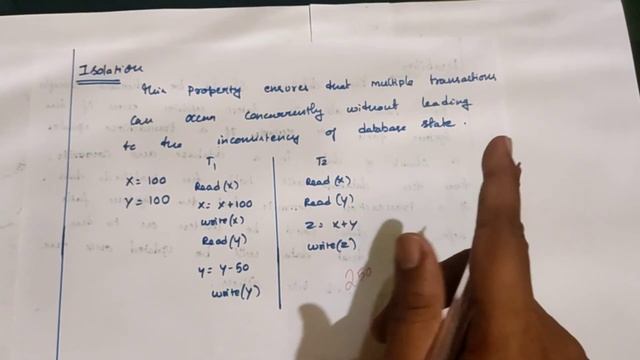 Isolation
This property ensures that multiple transactions
can occur concurrently without leading
to the inconsistency of database state.
T1 T2
X = 100 Read(x) Read(x)
Y = 100 x = x+100 Read(y)
write(x) z = x+y
Read(y) write(z)
y = y-50 250
write(y)